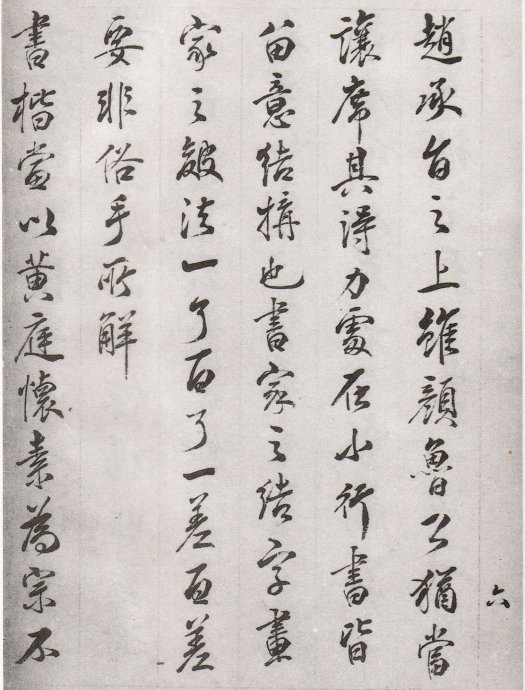 趙承旨之上雖顏魯公猶當
讓席其得力處在小行書皆
留意結構也書家之結字畫
家之皴法一了百了一差百差
要非俗手所解
書楷當以黃庭懷素為宗不
六